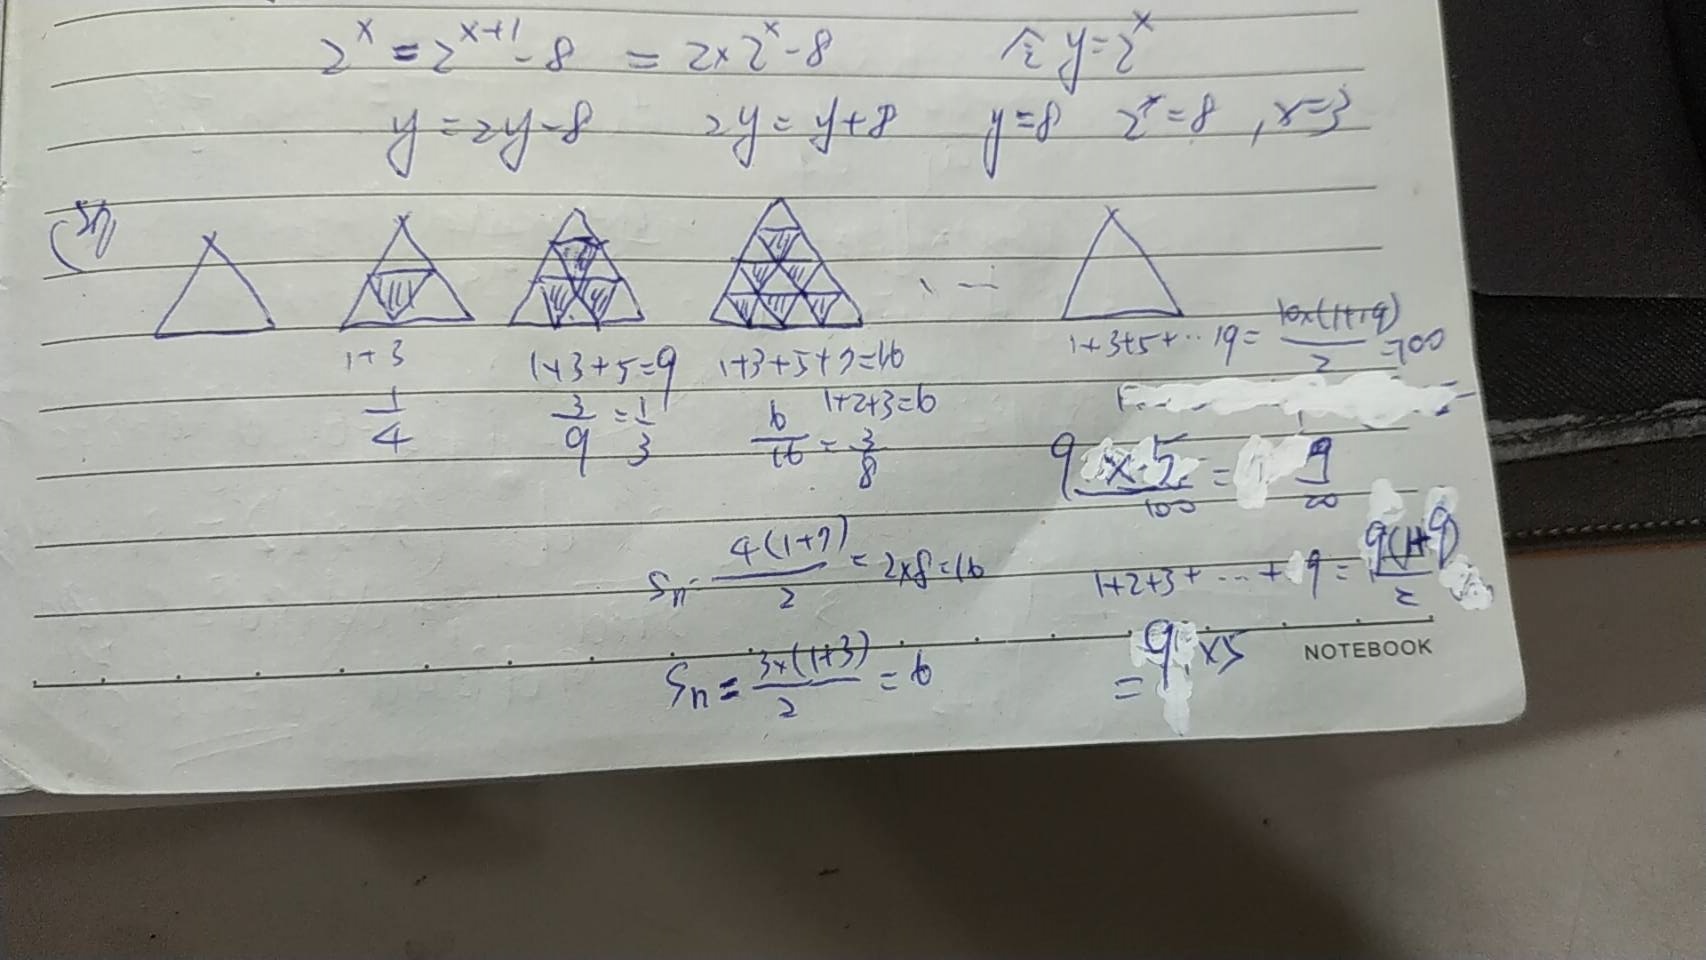 2^x = 2^{x+1} - 8 = 2×2^x - 8 令 y=2^x
y = 2y-8 2y = y+8 y=8 2^x=8 , x=3
1+3 1+3+5=9 1+3+5+7=16 1+3+5+ ·· 19 = 10×(1+19)/2 = 100
1/4 3/9 = 1/3 1+2+3=6 6/16 = 3/8
9×5/100 = 9/20
Sn = 4(1+7)/2 = 2×8=16 1+2+3+ ... + 9 = 9(1+9)/2
Sn = 3×(1+3)/2 = 6 = 9×5
NOTEBOOK